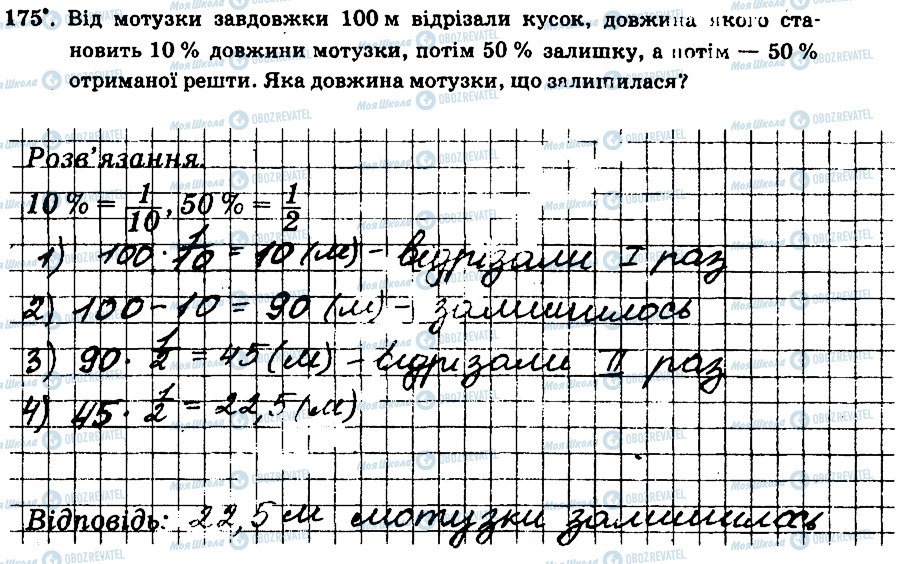 175°. Від мотузки завдовжки 100 м відрізали кусок, довжина якого ста-
новить 10 % довжини мотузки, потім 50 % залишку, а потім — 50 %
отриманої решти. Яка довжина мотузки, що залишилася?
Розв'язання.
10 % = 1/10, 50 % = 1/2
1) 100 · 1/10 = 10 (м) – відрізали I раз
2) 100 – 10 = 90 (м) – залишилось
3) 90 · 1/2 = 45 (м) – відрізали II раз
4) 45 · 1/2 = 22,5 (м)
Відповідь: 22,5 м мотузки залишилось
МояШкола OBOZREVATEL